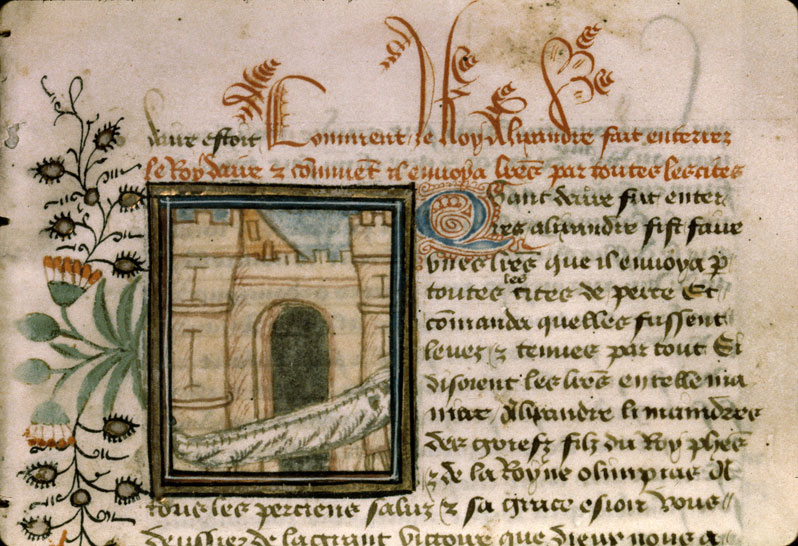 daire estoit Comment le Roy Alixandre fait enterrer
le Roy daire & comment il envoya lres par toutes les cites
Quant daire fut enter
res alixandre fist faire
unes lres que il envoya p
toutes les cites de perce Et
comanda quelles fussent
leues & tenues par tout Et
disoient les lres en telle ma
niere Alixandre li maindres
des gorefz filz du Roy phes
& de la Royne olimpias A
tous les perciens saluz & sa grace esioir vous
de la grant victoire que dieux nous a